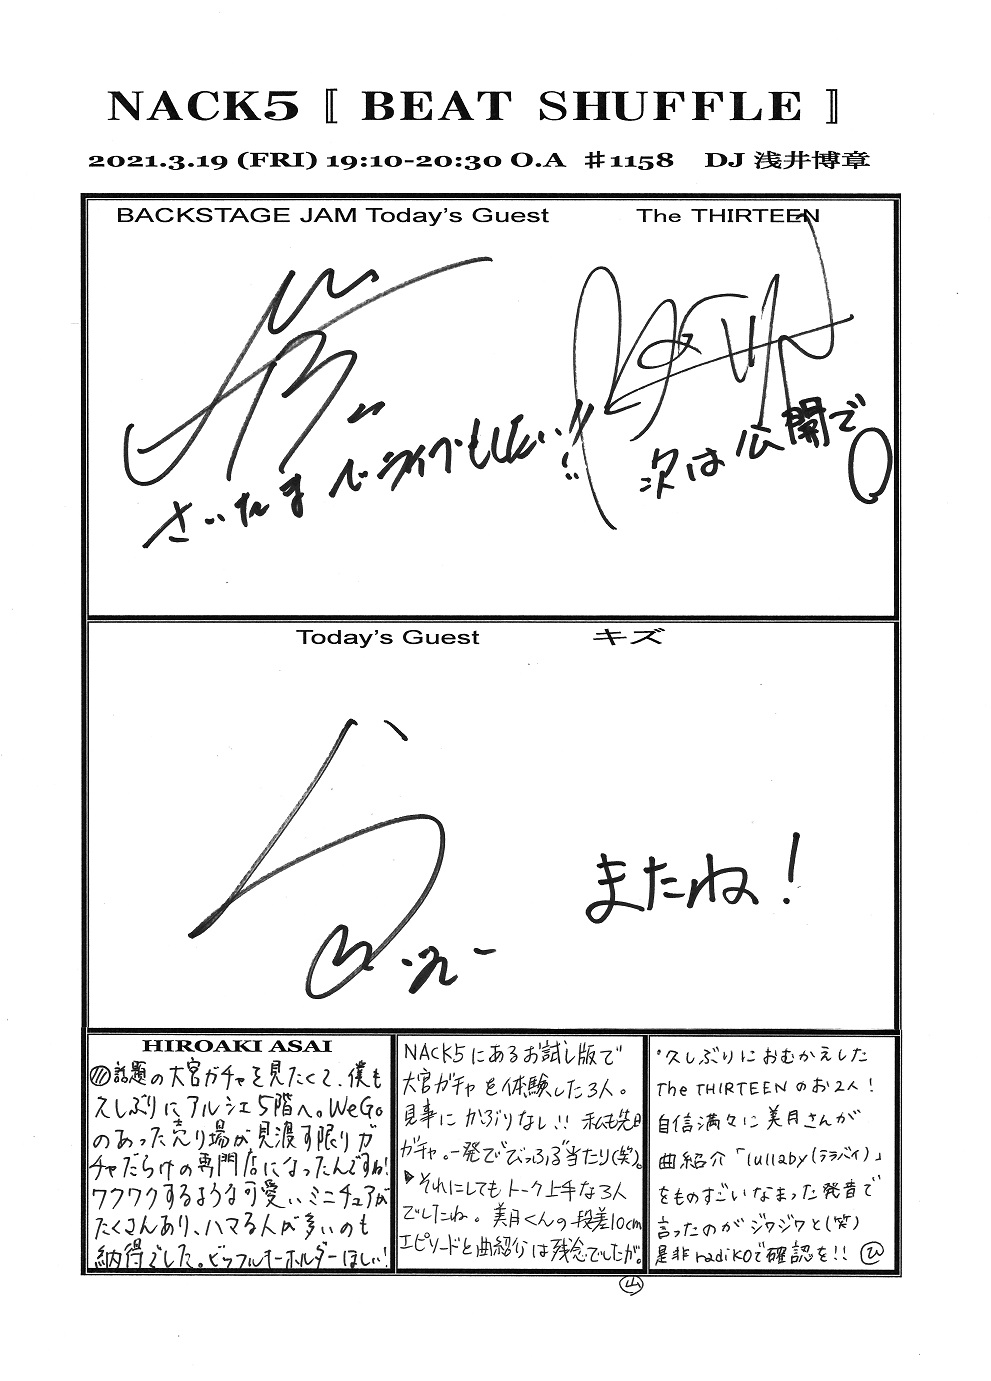 NACK5〚 BEAT SHUFFLE 〛
2021.3.19 (FRI) 19:10-20:30 O.A ♯1158 DJ 浅井博章
BACKSTAGE JAM Today's Guest The THIRTEEN
さいたまでライブもしたい!!
次は公開で
Today's Guest キズ
またね!
HIROAKI ASAI
話題の大宮ガチャを見たくて、僕も
久しぶりにアルシェ5階へ。WeGo
のあった売り場が見渡す限りガ
チャだらけの専門店になったんですね!
ワクワクするような可愛いミニチュアが
たくさんあり、ハマる人が多いのも
納得でした。ビックルキーホルダーほしい!
NACK5にあるお試し版で
大宮ガチャを体験した3人。
見事にかぶりなし!! 私も先日
ガチャ。一発でびっふる当たり(笑)。
それにしてもトーク上手な3人
でしたね。美月くんの段差10cm
エピソードと曲紹介は残念でしたが。
山
・久しぶりにおむかえした
The THIRTEENのお2人!
自信満々に美月さんが
曲紹介「lullaby(ララバイ)」
をものすごいなまった発音で
言ったのがジワジワと(笑)
是非radikoで確認を!! ひ